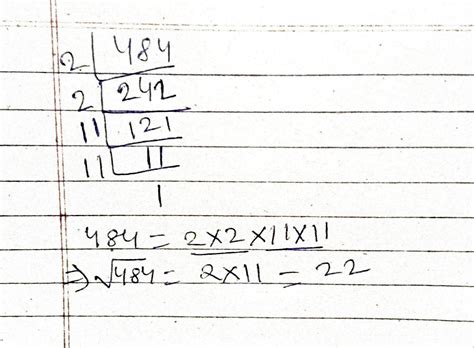 2 | 484
2 | 242
11 | 121
11 | 11
1
484 = 2×2×11×11
⇒ √484 = 2×11 = 22